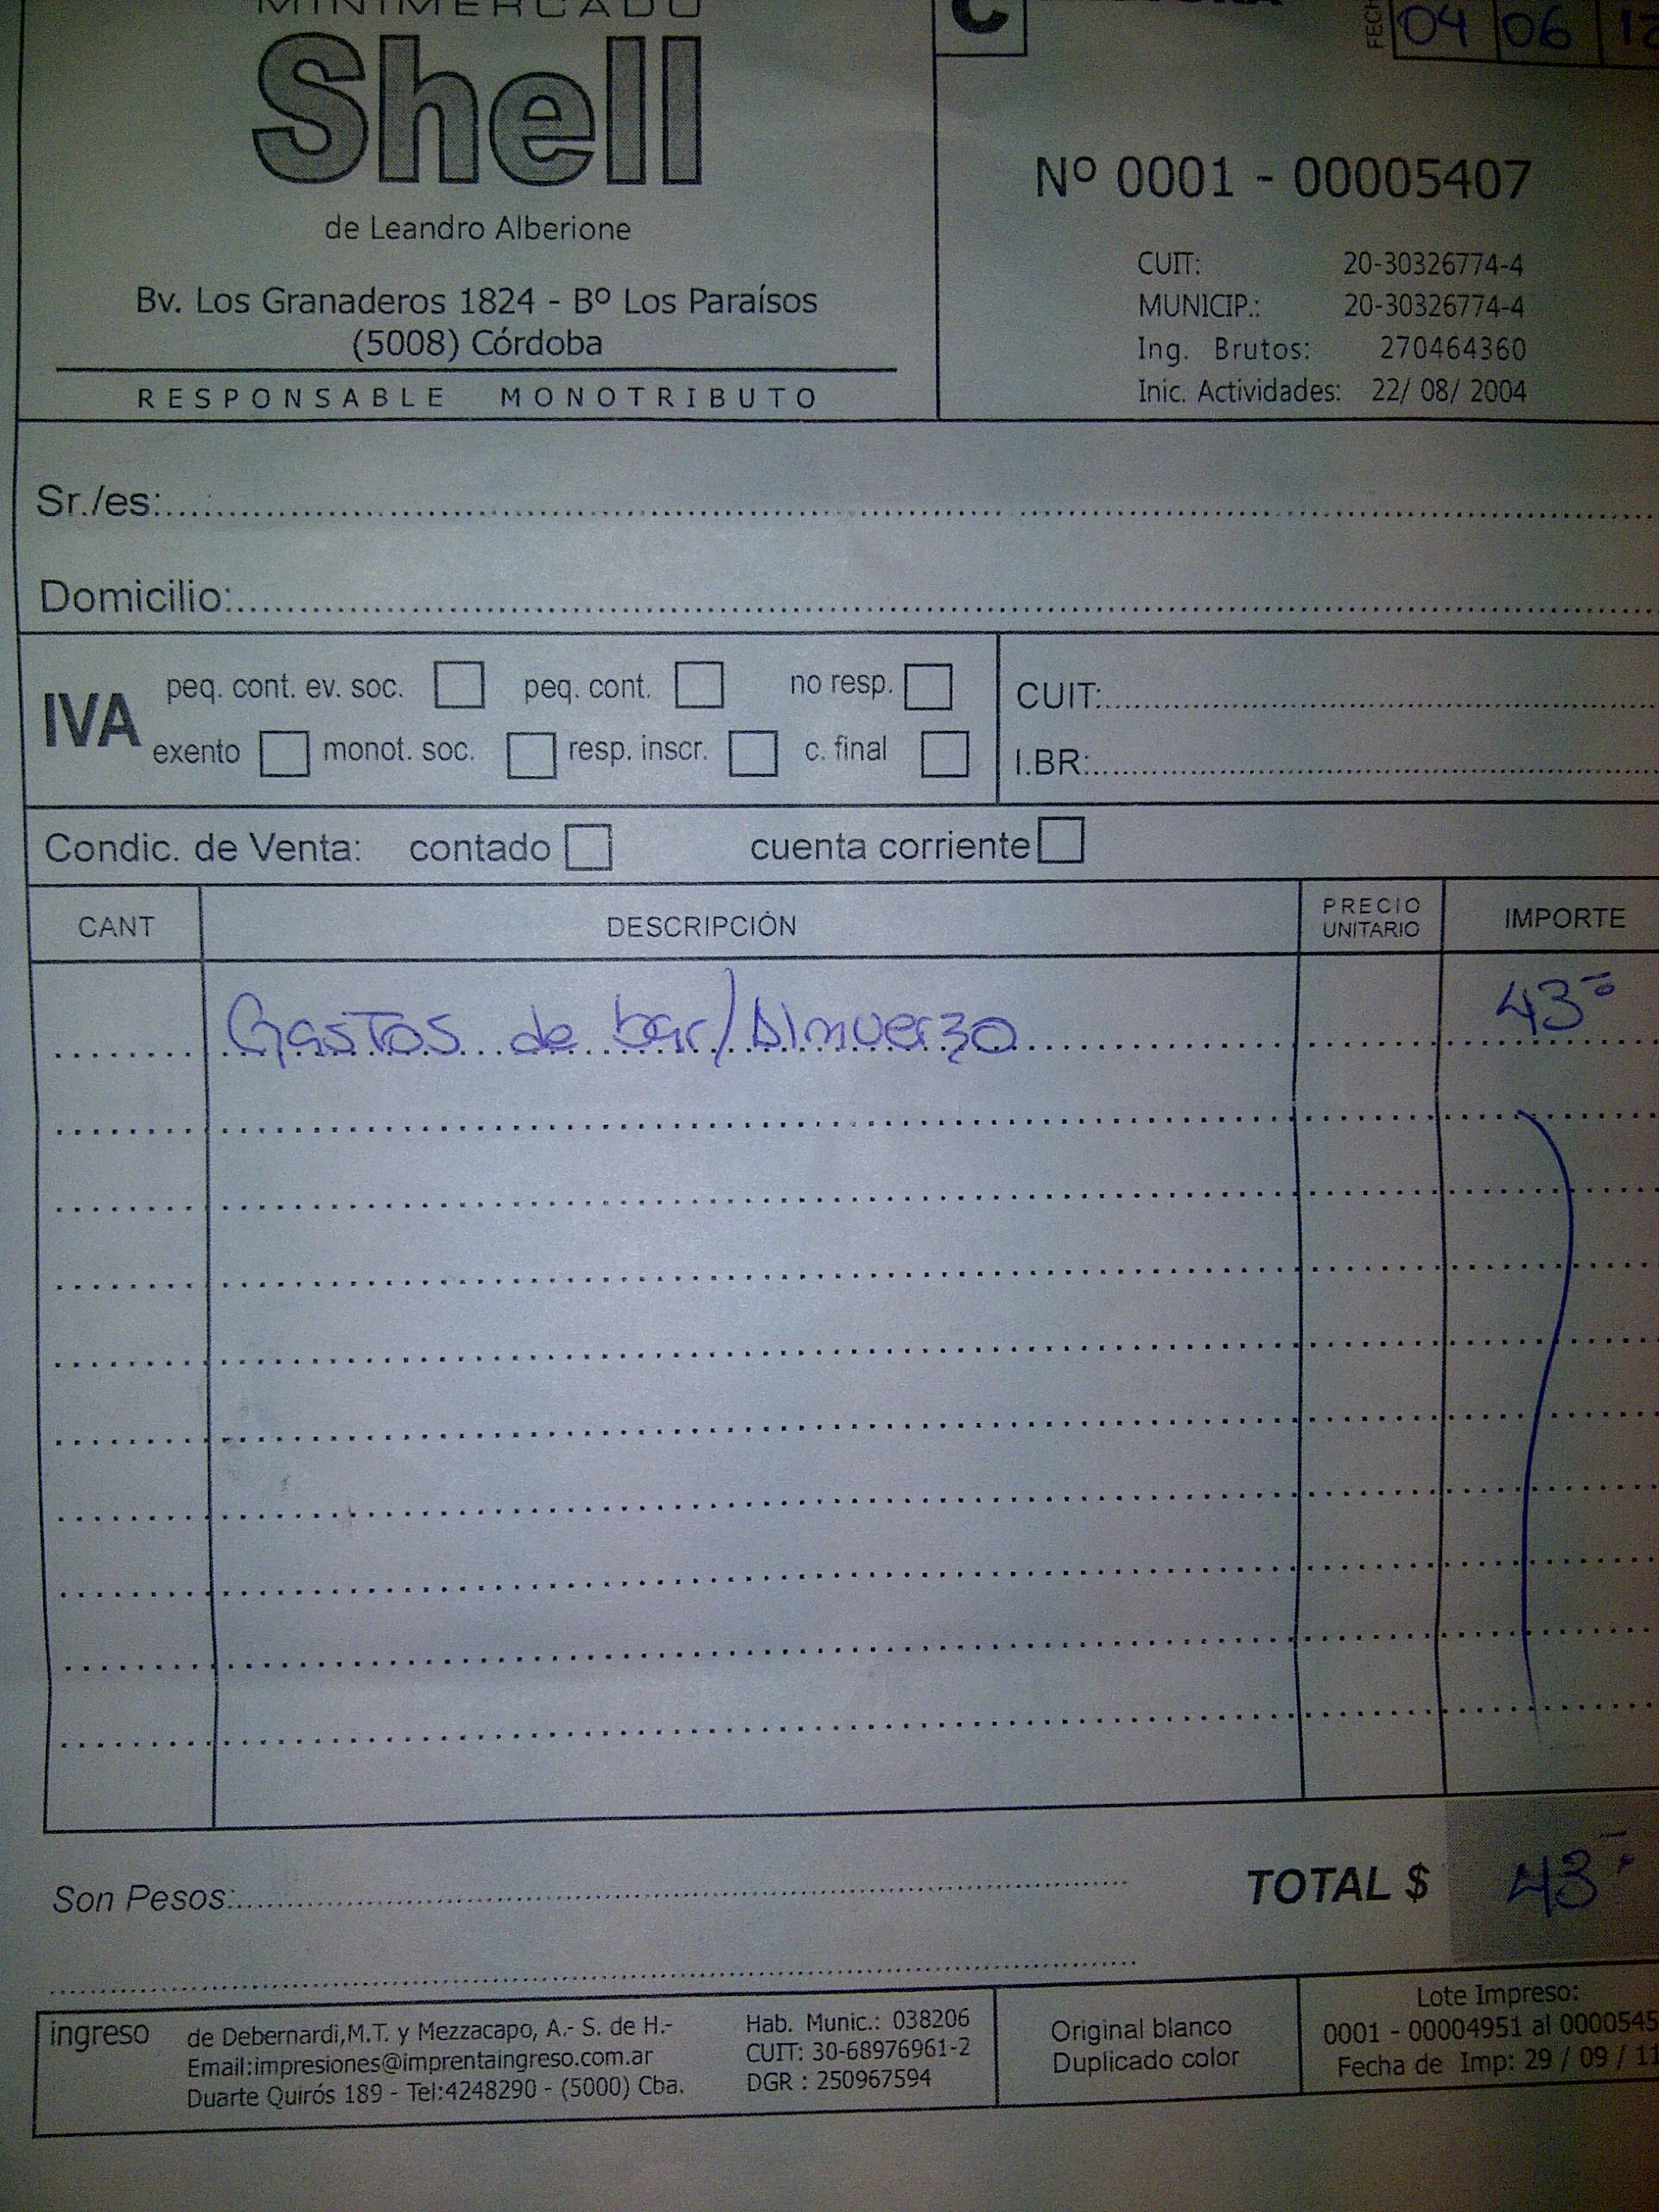 MINIMERCADO
Shell
de Leandro Alberione
Bv. Los Granaderos 1824 - Bº Los Paraísos
(5008) Córdoba
RESPONSABLE MONOTRIBUTO
C
04 06 12
Nº 0001 - 00005407
CUIT: 20-30326774-4
MUNICIP.: 20-30326774-4
Ing. Brutos: 270464360
Inic. Actividades: 22/ 08/ 2004
Sr./es:
Domicilio:
IVA
peq. cont. ev. soc. peq. cont. no resp.
exento monot. soc. resp. inscr. c. final
CUIT:
I.BR:
Condic. de Venta: contado cuenta corriente
CANT DESCRIPCIÓN PRECIO UNITARIO IMPORTE
Gastos de bar/Almuerzo 43
Son Pesos:
TOTAL $ 43
ingreso
de Debernardi,M.T. y Mezzacapo, A.- S. de H.-
Email:impresiones@imprentaingreso.com.ar
Duarte Quirós 189 - Tel:4248290 - (5000) Cba.
Hab. Munic.: 038206
CUIT: 30-68976961-2
DGR : 250967594
Original blanco
Duplicado color
Lote Impreso:
0001 - 00004951 al 0000545
Fecha de Imp: 29 / 09 / 11